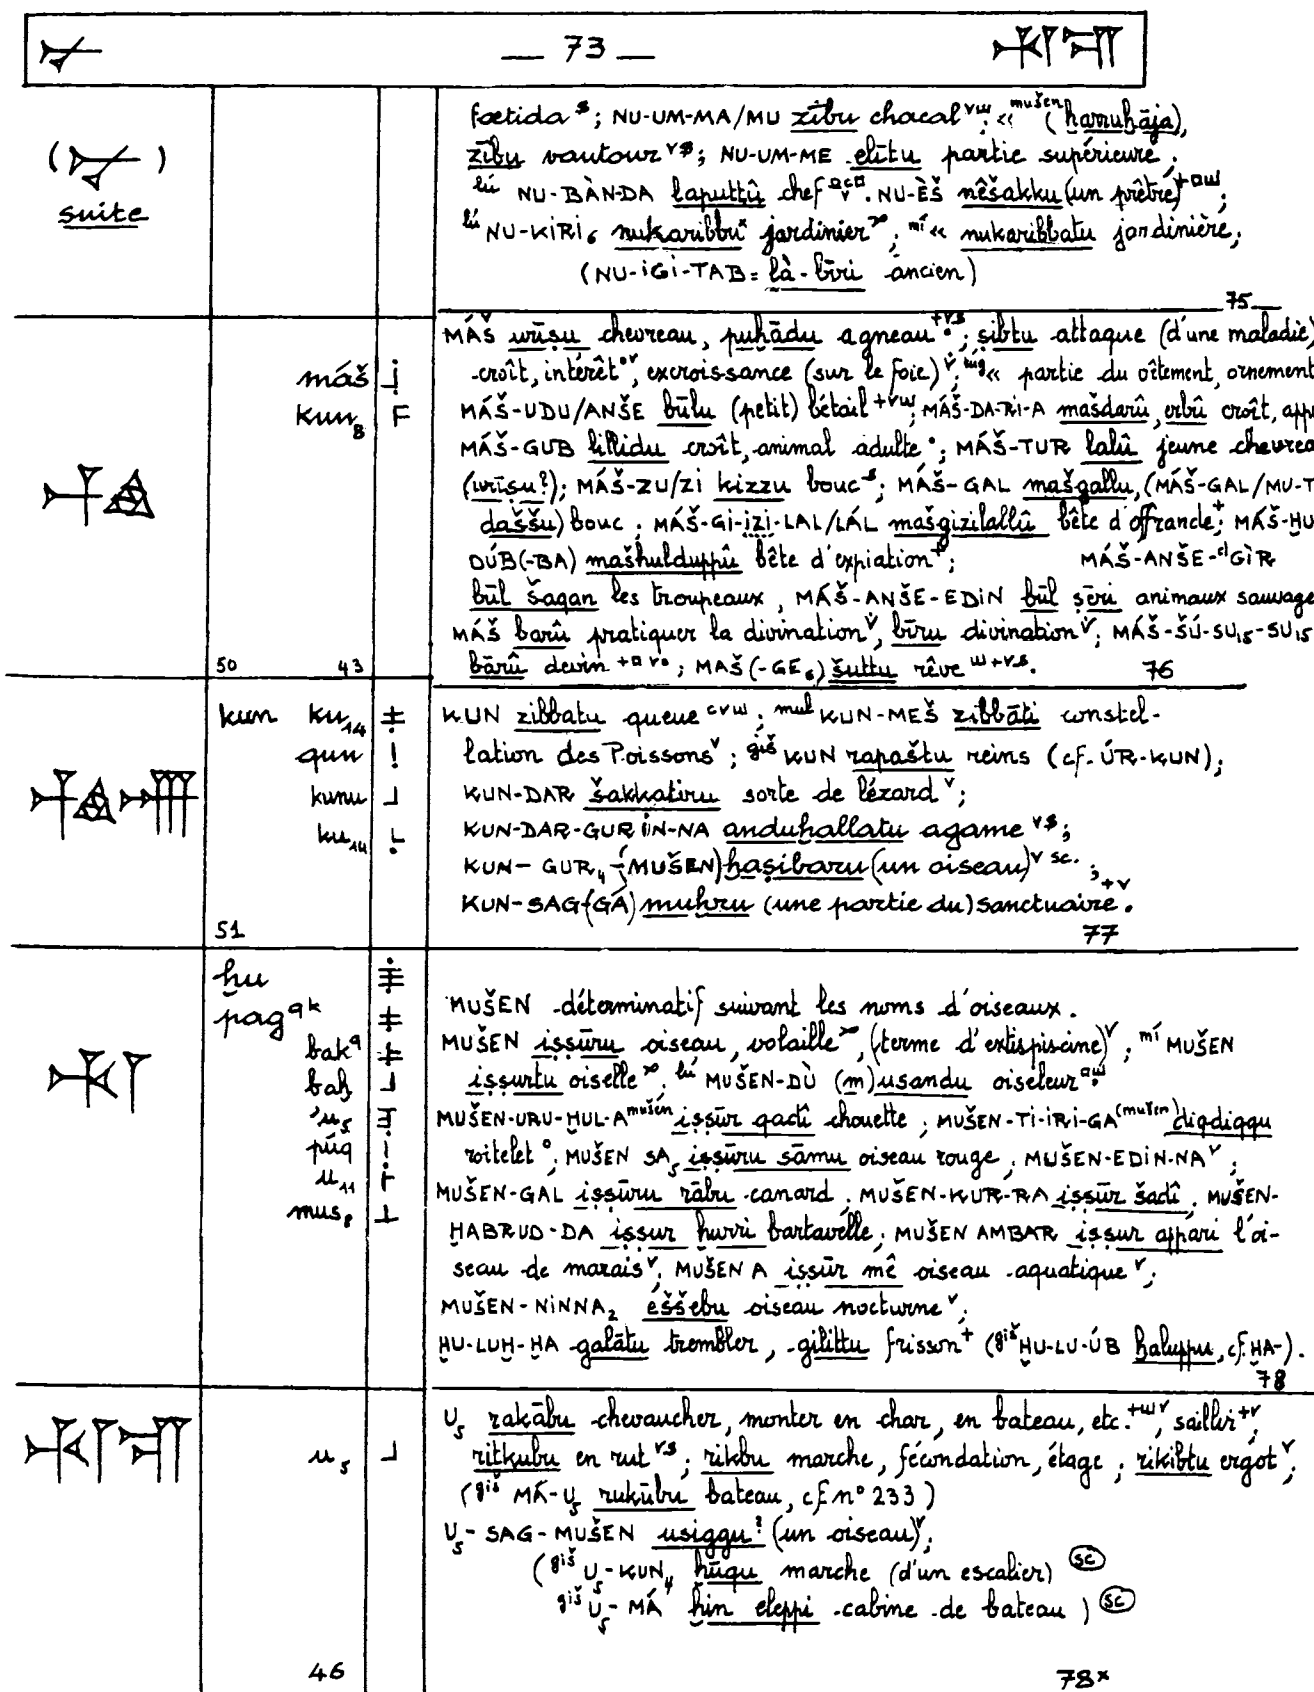 — 73 —
fœtida $; NU-UM-MA/MU zību chacal vw; « mušen (ḫarruḫāja),
zību vautour v$; NU-UM-ME elītu partie supérieure;
suite
lú NU-BÀN-DA laputtû chef. NU-ÈŠ nêšakku (un prêtre);
lú NU-KIRI₆ nukaribbu jardinier; mí « nukaribbatu jardinière;
(NU-IGI-TAB = là-bīri ancien)
75
MÁŠ urīṣu chevreau, puḫādu agneau; ṣibtu attaque (d'une maladie)
máš croît, intérêt, excrois-sance (sur le foie) v; túg « partie du vêtement, ornement
kun₈ MÁŠ-UDU/ANŠE būlu (petit) bétail +vw; MÁŠ-DA-RI-A mašdarû, erbû croît,
MÁŠ-GUB lillidu croît, animal adulte; MÁŠ-TUR lalû jeune
(urīṣu?); MÁŠ-ZU/ZI kizzu bouc; MÁŠ-GAL mašgallu, (MÁŠ-GAL/MU-
daššu) bouc; MÁŠ-GI-IZI-LAL/LÁL mašgizilallû bête d'offrande +; MÁŠ-ḪU
DÚB(-BA) mašḫulduppû bête d'expiation +; MÁŠ-ANŠE-d GÌR
būl šaqan les troupeaux, MÁŠ-ANŠE-EDIN būl ṣēri animaux sauvage
MÁŠ barû pratiquer la divination v, bīru divination v; MÁŠ-ŠÚ-SU₁₅-SU₁₅
bārû devin; MAŠ(-GE₆) šuttu rêve w+v$.
50 43 76
kun ku₁₄ KUN zibbatu queue cvw; mul KUN-MEŠ zibbāti constel-
qun lation des Poissons v; giš KUN rapaštu reins (cf. ÚR-KUN);
kunu KUN-DAR šakkatiru sorte de lézard v;
KUN-DAR-GURIN-NA anduḫallatu agame v$;
KUN-GUR₄-(MUŠEN) ḫaṣibaru (un oiseau) v sc.;
KUN-SAG(GÁ) muḫru (une partie du) sanctuaire +v.
51 77
ḫu
pag qk MUŠEN déterminatif suivant les noms d'oiseaux.
bak q MUŠEN iṣṣūru oiseau, volaille, (terme d'extispicine) v; mí MUŠEN
baḫ iṣṣurtu oiselle. lú MUŠEN-DÙ (m)usandu oiseleur
'u₅ MUŠEN-URU-ḪUL-A mušen iṣṣūr qadî chouette; MUŠEN-TI-IRI-GA (mušen) diqdiqqu
púq roitelet; MUŠEN SA₅ iṣṣūru sāmu oiseau rouge; MUŠEN-EDIN-NA v;
u₁₁ MUŠEN-GAL iṣṣūru rābu canard; MUŠEN-KUR-RA iṣṣūr šadî; MUŠEN-
mus₈ ḪABRUD-DA iṣṣur ḫurri bartavelle; MUŠEN AMBAR iṣṣur appāri l'oi-
seau de marais v; MUŠEN A iṣṣūr mê oiseau aquatique v;
MUŠEN-NINNA₂ eššebu oiseau nocturne v;
ḪU-LUḪ-ḪA galātu trembler, gilittu frisson + (giš ḪU-LU-ÚB ḫaluppu, cf. ḪA-).
78
U₅ rakābu chevaucher, monter en char, en bateau, etc. +wv, saillir +v;
u₅ ritkubu en rut v$; rikbu marche, fécondation, étage; rikibtu ergot v;
(giš MÁ-U₅ rukūbu bateau, cf. n° 233)
U₅-SAG-MUŠEN usiggu? (un oiseau) v;
(giš U₅-KUN₄ ḫūqu marche (d'un escalier) sc
giš U₅-MÁ ḫin eleppi cabine de bateau) sc
46 78x